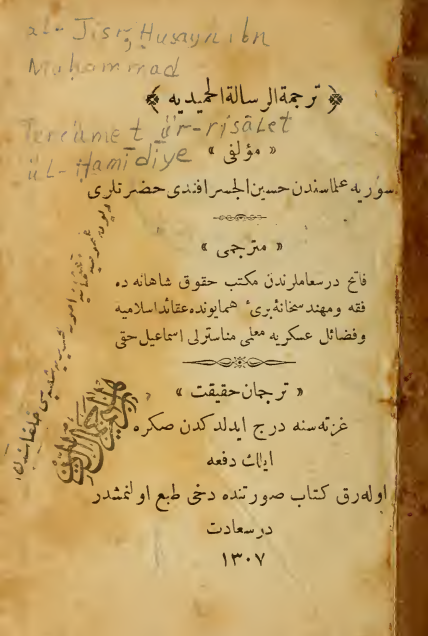 al-Jisr, Husayn ibn
Muḥammad
ترجمة الرسالة الحمیدیه
Tercümet ür-risâlet
ül-Ḥamîdiye
« مؤلفی »
سوریه علماسندن حسین الجسر افندی حضرتلری
« مترجمی »
فاتح درسعاملرندن مکتب حقوق شاهانه ده
فقه ومهندسخانۀ بری ٔ همایونده عقائد اسلامیه
وفضائل عسکریه معلمی مناسترلی اسماعیل حقی
« ترجمان حقیقت »
غزته سنه درج ایدلدکدن صکره
ایلك دفعه
اوله رق کتاب صورتنده دخی طبع اولنمشدر
درسعادت
۱۳۰۷